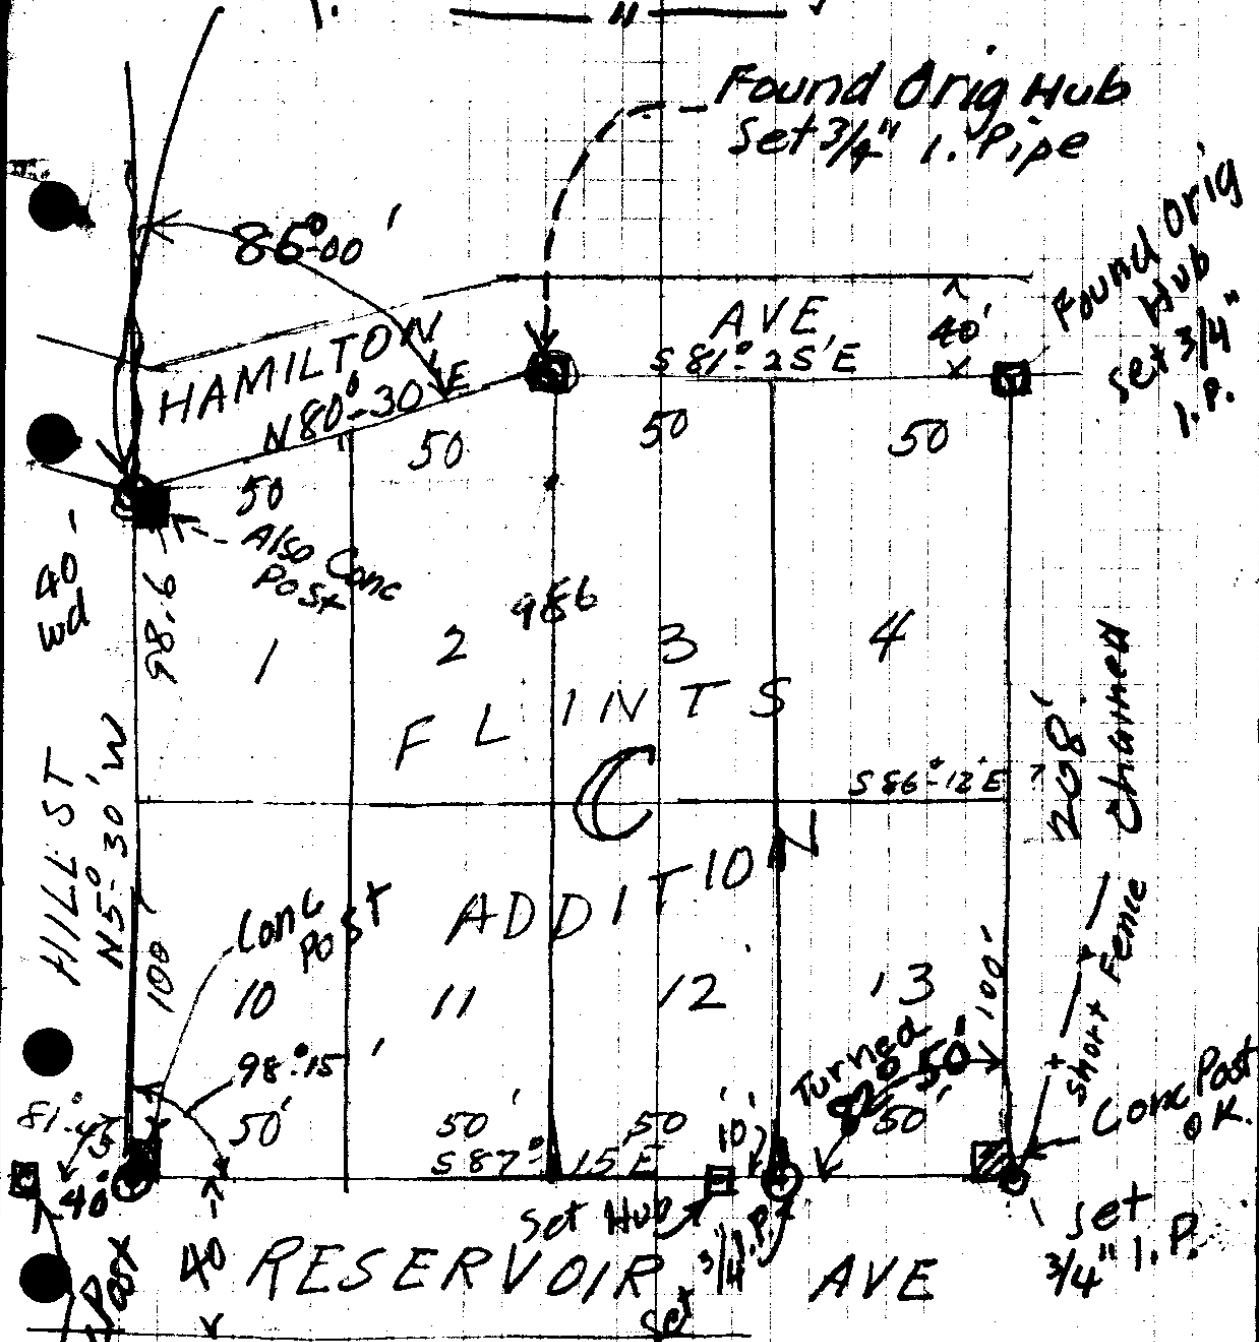 Found Orig Hub
Set 3/4" I. Pipe
Found Orig
Hub
Set 3/4"
I.P.
85°-00'
HAMILTON
AVE
40'
N80°-30'E
S 81°-25'E
50
50
50
50
Also Conc
Post
40'
wd
98.6
986
1
2
3
4
FLINTS
C
S 86°-12'E ?
208'
Chained
HILL ST
N5°-30'W
ADDITION
Conc
Post
100'
10
11
12
13
100'
Short Fence
98°-15'
Turned
82° 50'
Conc Post
OK.
81°-45'
50'
50'
50
10'
50'
S 87°-15'E
40'
Set Hub
Set
3/4" I.P.
Set
3/4" I.P.
40
RESERVOIR
AVE
Post